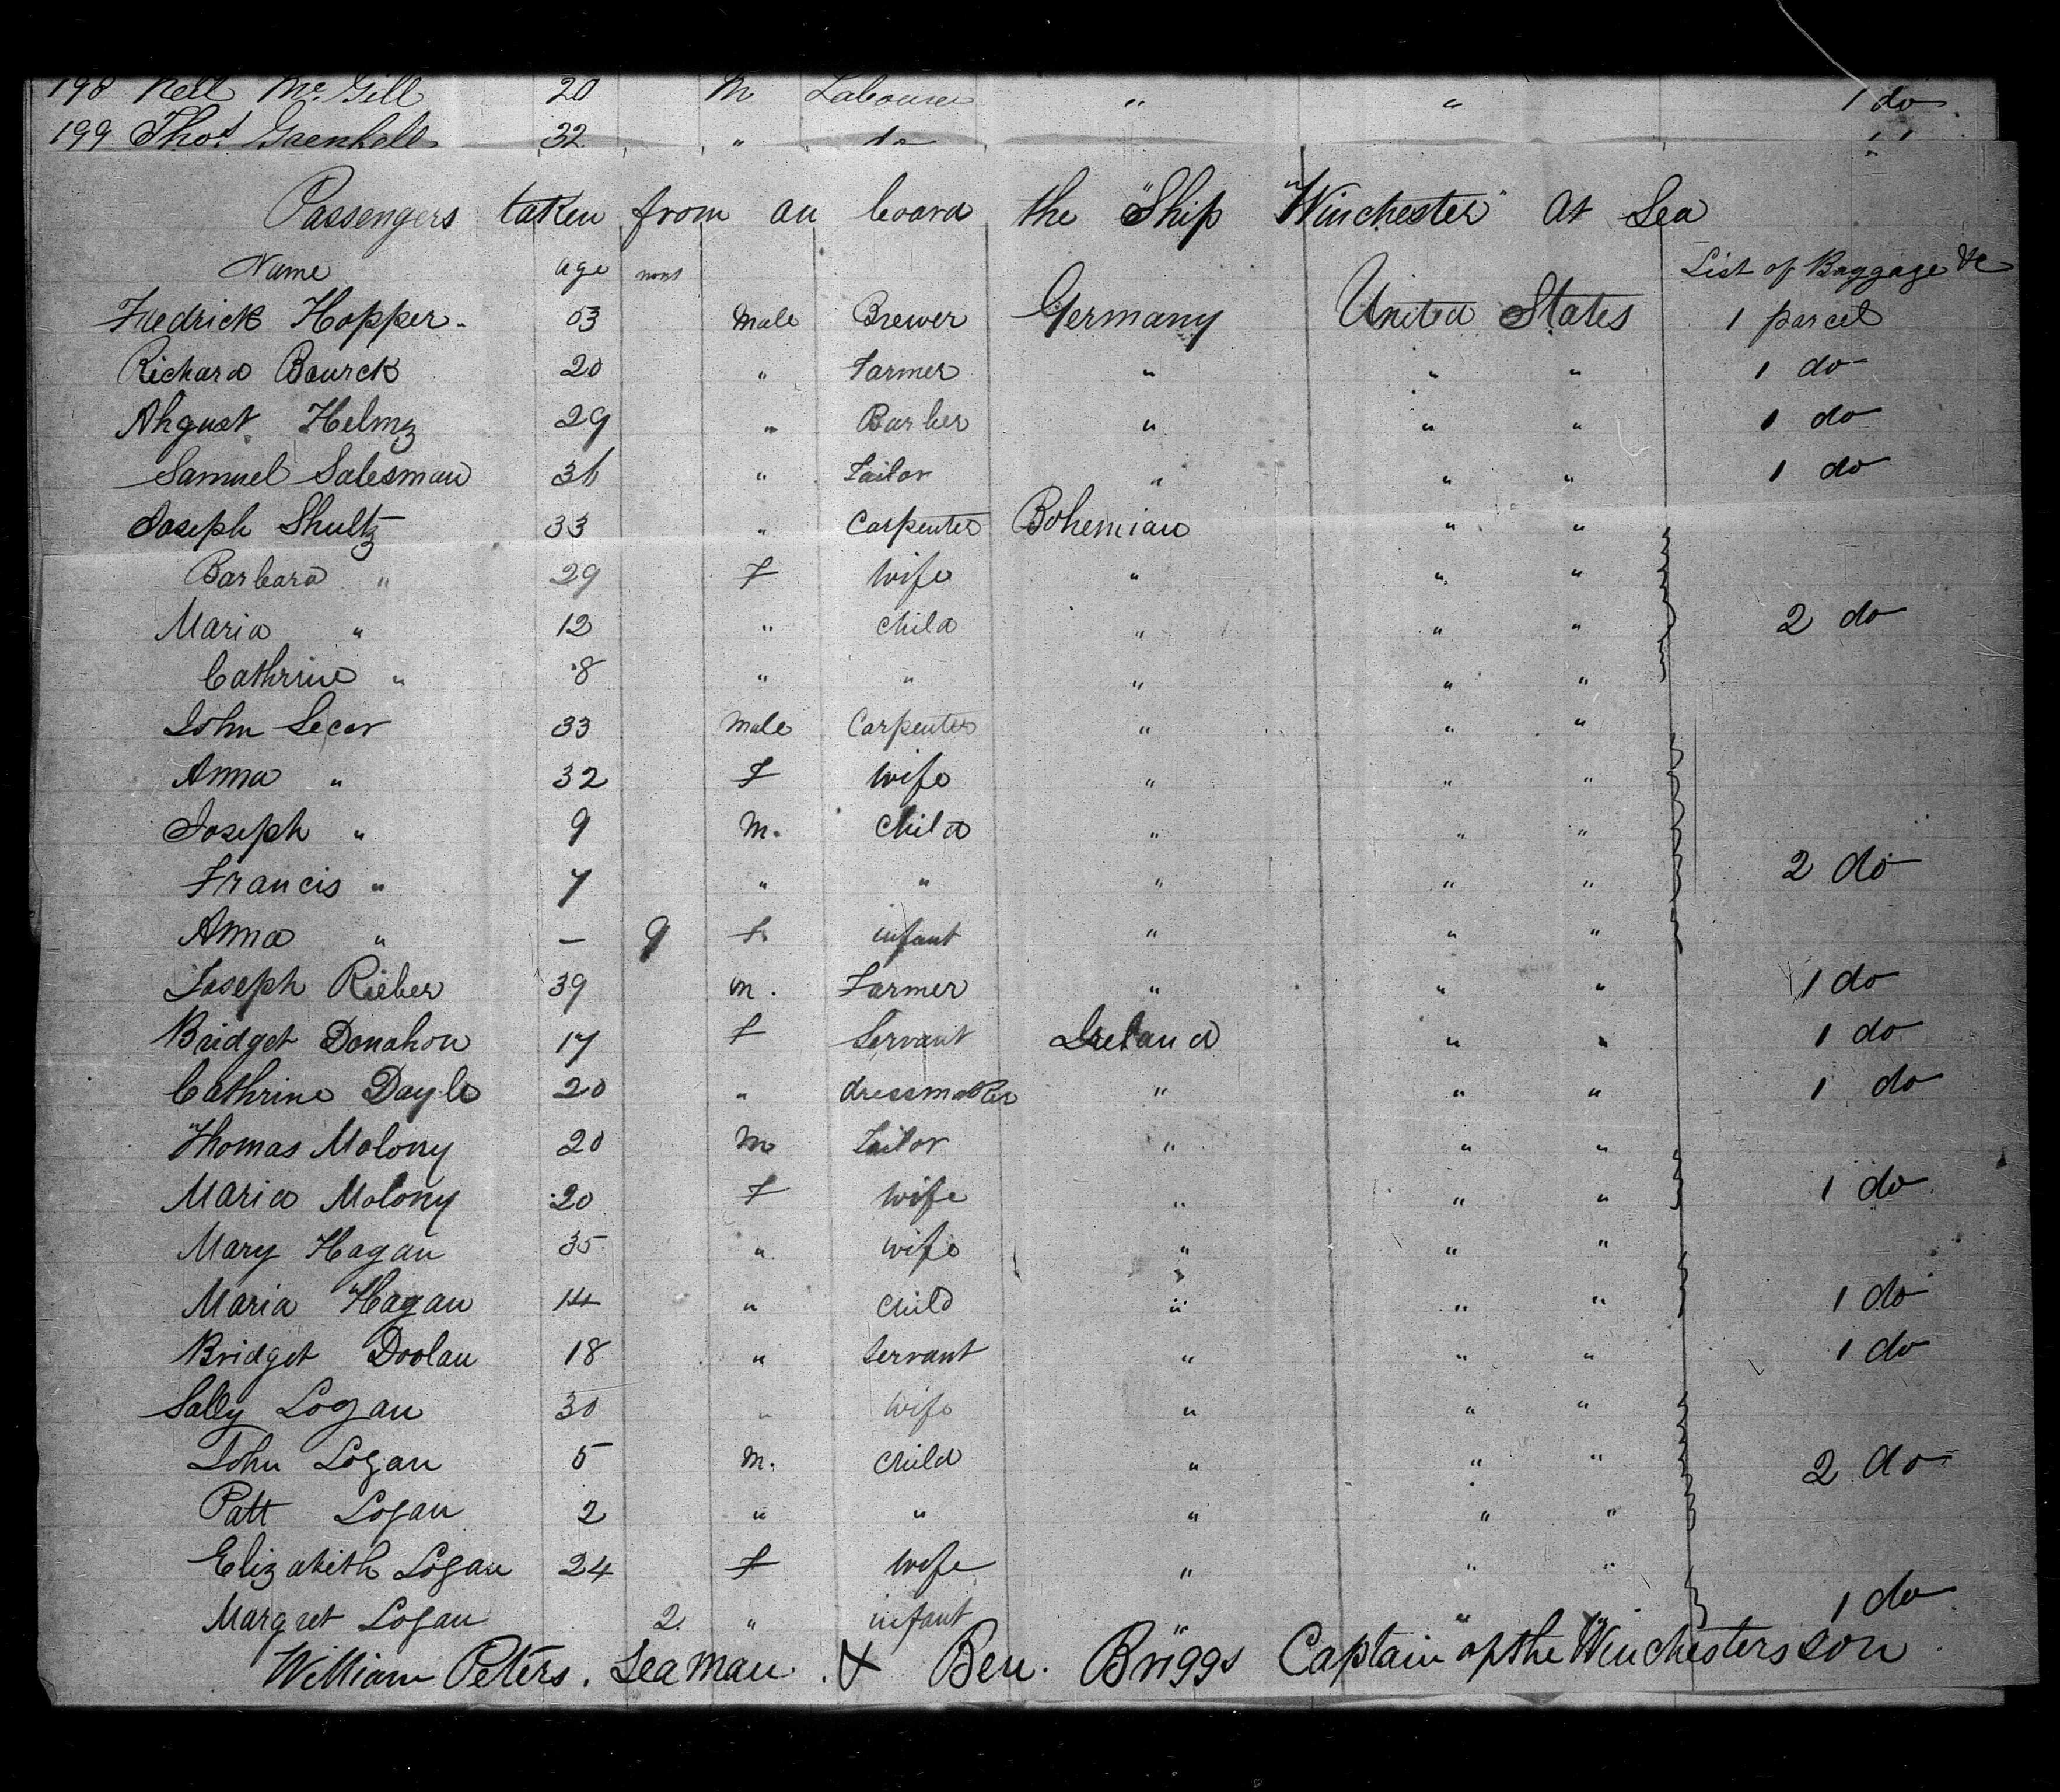 198 Neil Mc. Gill 20 M Labourer " " 1 do
199 Thos. 32 " do " "
Passengers taken from on board the "Ship "Winchester" at Sea
Name age mons List of Baggage &c
Fredrick Hopper. 53 Male Brewer Germany United States 1 parcel
Richard Bourck 20 " Farmer " " " 1 do
Ahgust Helmz 29 " Barber " " " 1 do
Samuel Salesman 36 " Tailor " " " 1 do
Joseph Shultz 33 " Carpenter Bohemian " "
Barbara " 29 F wife " " "
Maria " 12 " child " " " 2 do
Cathrine " 8 " " " " "
John Secor 33 Male Carpenter " " "
Anna " 32 F wife " " "
Joseph " 9 M. Child " " "
Francis " 7 " " " " " 2 do
Anna " – 9 F. infant " " "
Joseph Rieber 39 M. Farmer " " " 1 do
Bridget Donahou 17 F Servant Ireland " " 1 do
Cathrine Doyle 20 " dressmaker " " " 1 do
Thomas Molony 20 M Tailor " " "
Maria Molony 20 F wife " " " 1 do
Mary Hagan 35 " wife " " "
Maria Hagan 14 " child " " " 1 do
Bridget Doolan 18 " servant " " " 1 do
Sally Logan 30 " wife " " "
John Logan 5 M. child " " " 2 do
Patt Logan 2 " " " " "
Elizabith Logan 24 F wife " " "
Margret Logan 2. " infant " " " 1 do
William Peters. Seaman. & Ben. Briggs Captain of the Winchesters son